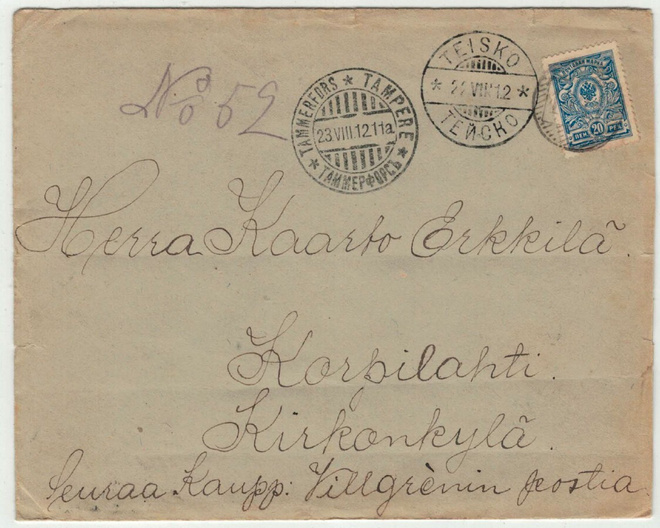 No 52
TAMMERFORS * TAMPERE *
23.VIII.12.11a
ТАММЕРФОРСЪ *
TEISKO
* 22.VIII.12 *
ТЕЙСКО
20
PEN. 20 PEN.
Herra Kaarlo Erkkilä.
Korpilahti.
Kirkonkylä.
Seuraa Kaupp: Villgrènin postia